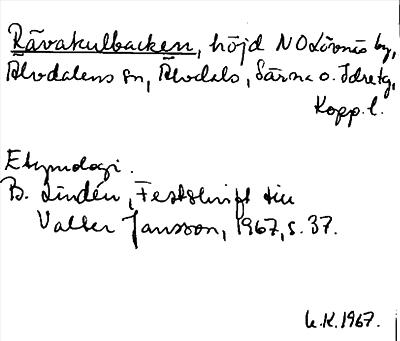 Rävakulbacken, höjd NO Lövnäs by,
Älvdalens sn, Älvdals, Särna o. Idre tg,
Kopp. l.
Etymologi.
B. Lindén, Festskrift till
Valter Jansson, 1967, s. 37.
L.K. 1967.